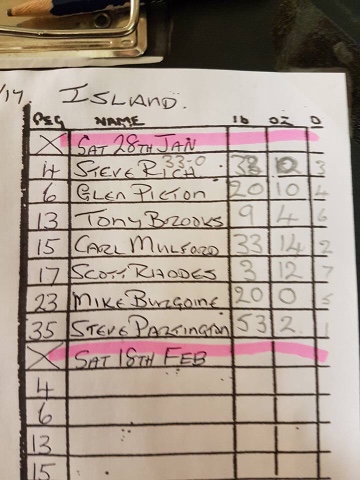 /17, ISLAND.
PEG NAME lb oz
SAT 28TH JAN
4 STEVE RICH 33-0 3
6 GLEN PICTON 20 10 4
13 TONY BROOKS 9 4 6
15 CARL MULFORD 33 14 2
17 SCOTT RHODES 3 12 7
23 MIKE BURGOINE 20 0 5
35 STEVE PARTINGTON 53 2 1
SAT 18TH FEB
4
6
13
15